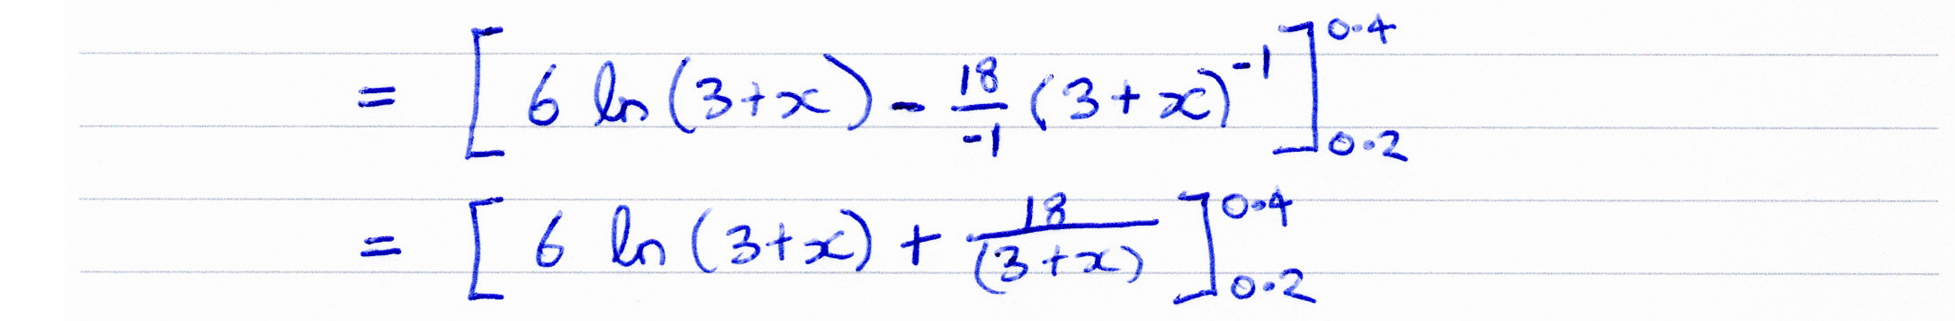 = [ 6 ln(3+x) - 18/-1 (3+x)^-1 ]_0.2^0.4
= [ 6 ln(3+x) + 18/(3+x) ]_0.2^0.4